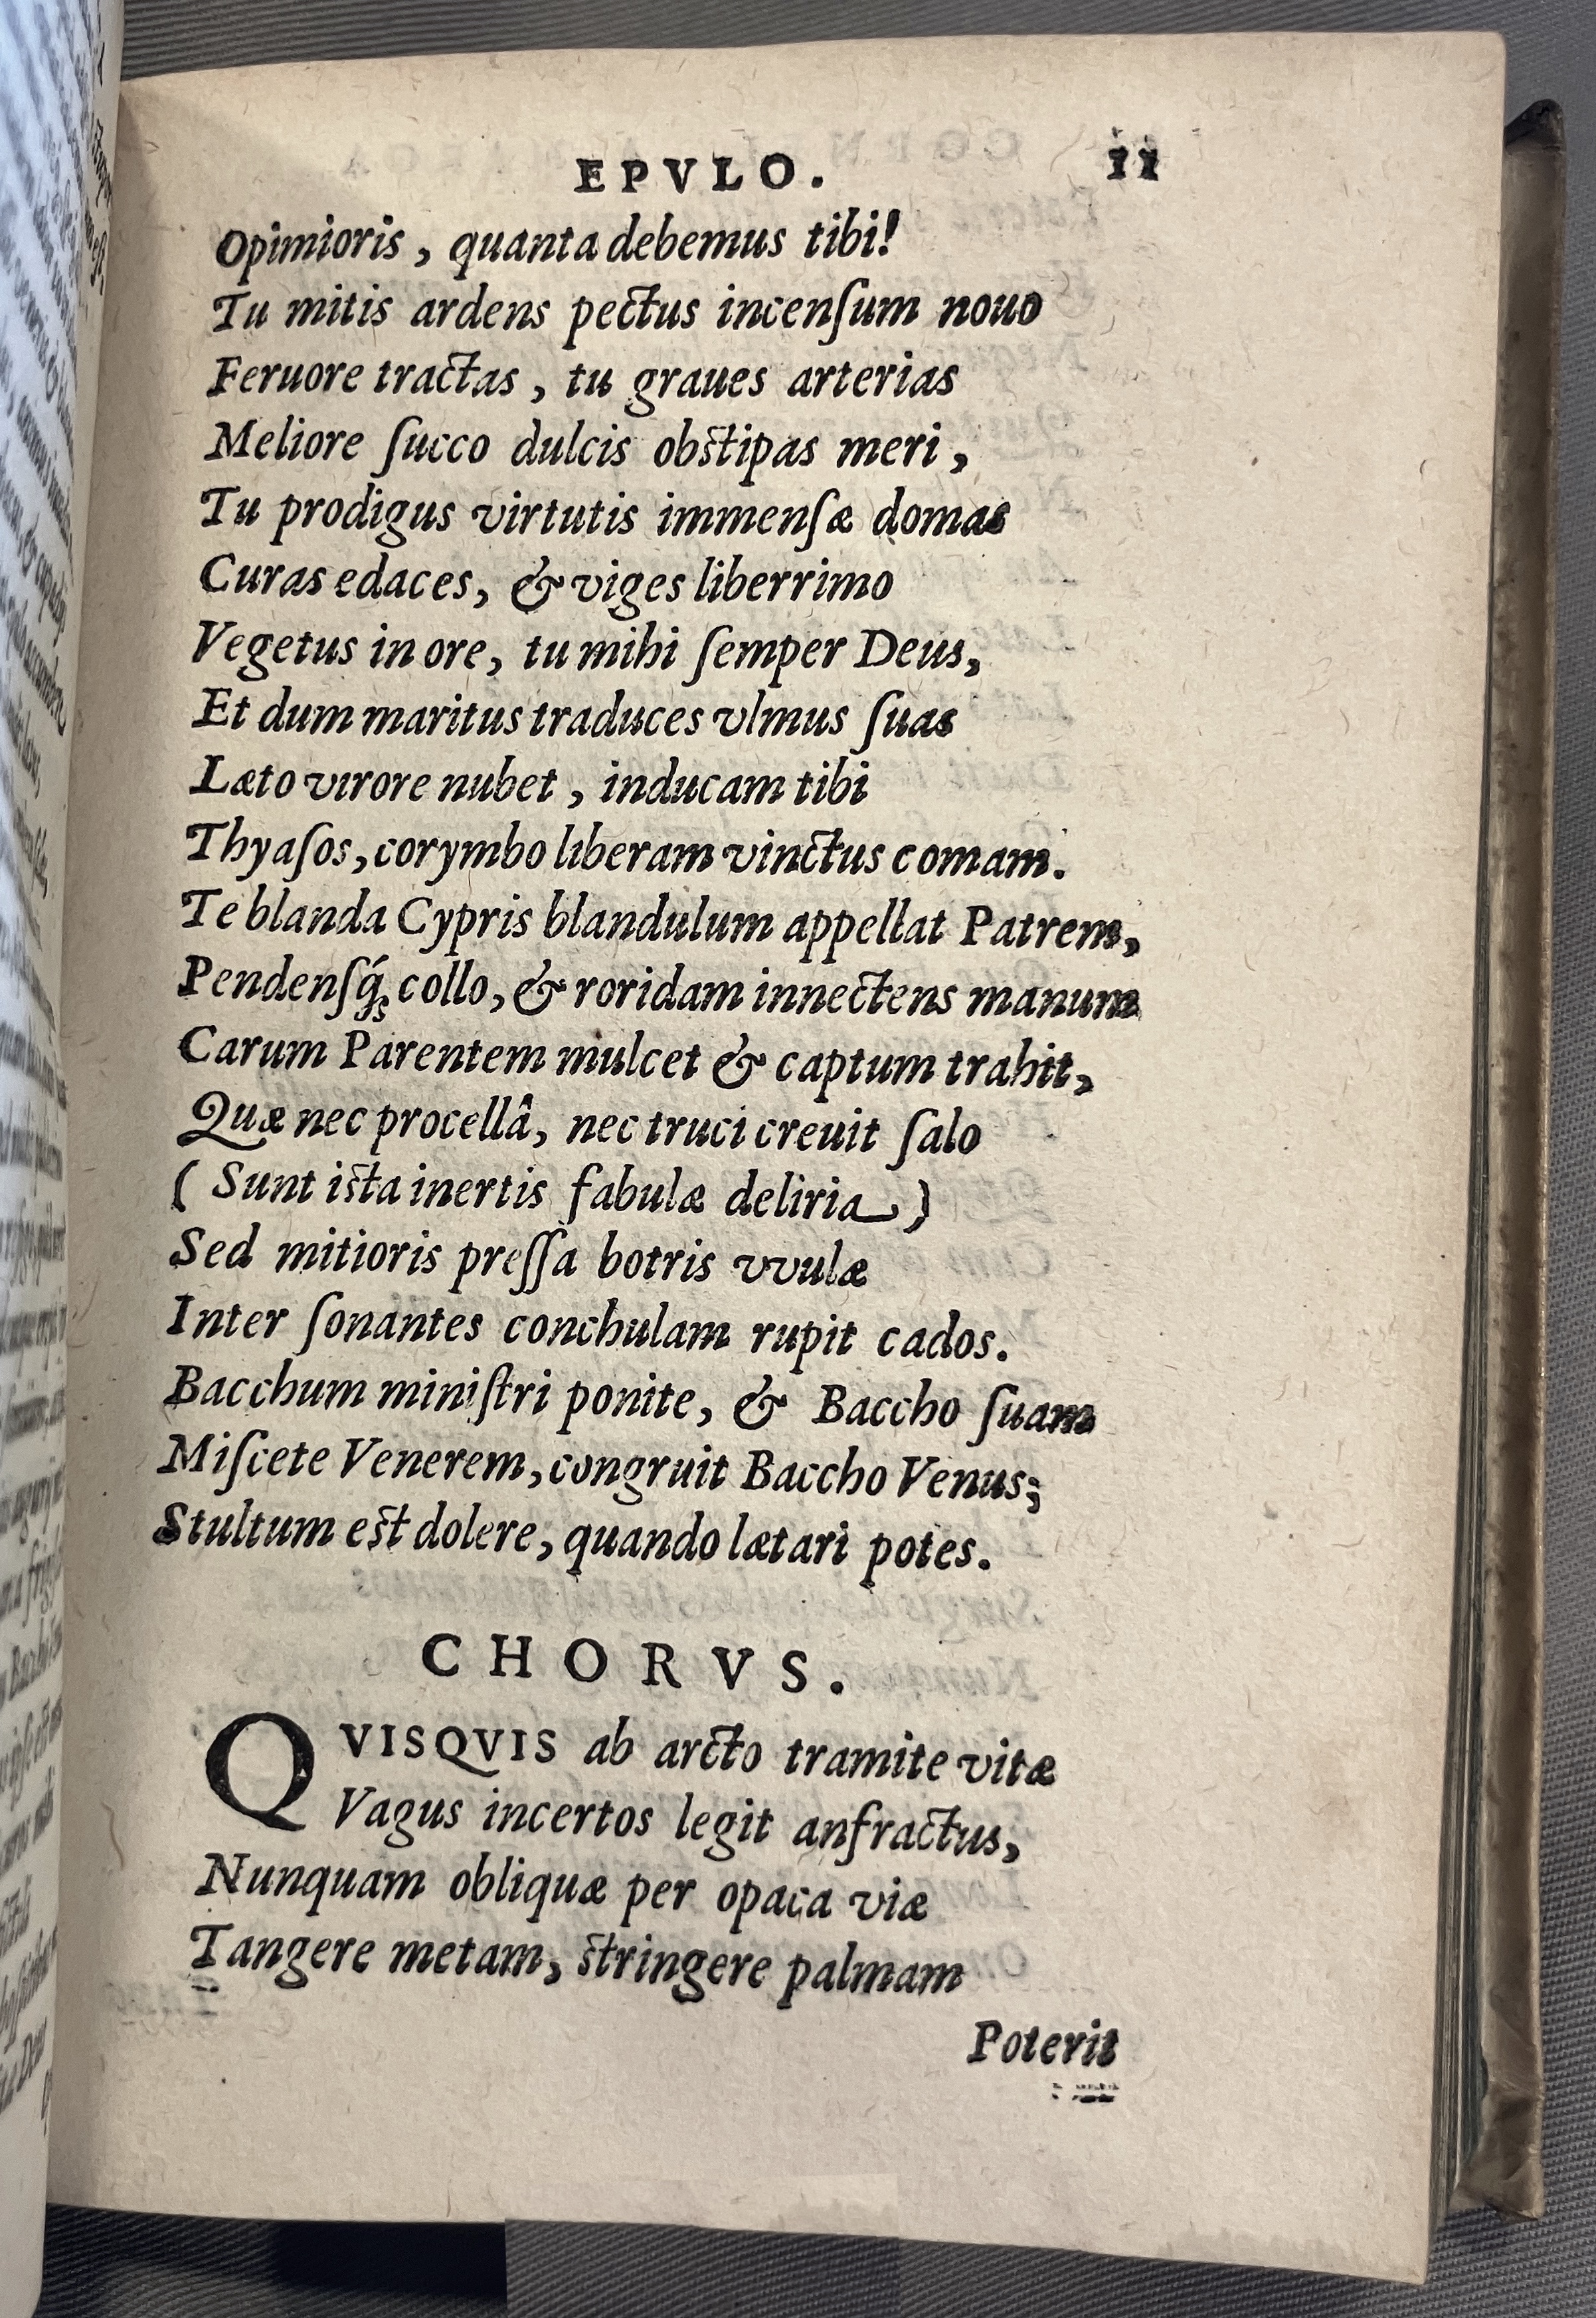 EPVLO. 11
Opimioris, quanta debemus tibi!
Tu mitis ardens pectus incenſum nouo
Feruore tractas, tu graues arterias
Meliore ſucco dulcis obstipas meri,
Tu prodigus virtutis immenſæ domas
Curas edaces, & viges liberrimo
Vegetus in ore, tu mihi ſemper Deus,
Et dum maritus traduces vlmus ſuas
Læto virore nubet, inducam tibi
Thyaſos, corymbo liberam vinctus comam.
Te blanda Cypris blandulum appellat Patrem,
Pendenſq́; collo, & roridam innectens manum
Carum Parentem mulcet & captum trahit,
Quæ nec procellâ, nec truci creuit ſalo
(Sunt ista inertis fabulæ deliria)
Sed mitioris preſſa botris vvulæ
Inter ſonantes conchulam rupit cados.
Bacchum miniſtri ponite, & Baccho ſuam
Miſcete Venerem, congruit Baccho Venus;
Stultum est dolere, quando lætari potes.
CHORVS.
QVISQVIS ab arcto tramite vitæ
Vagus incertos legit anfractus,
Nunquam obliquæ per opaca viæ
Tangere metam, stringere palmam
Poterit